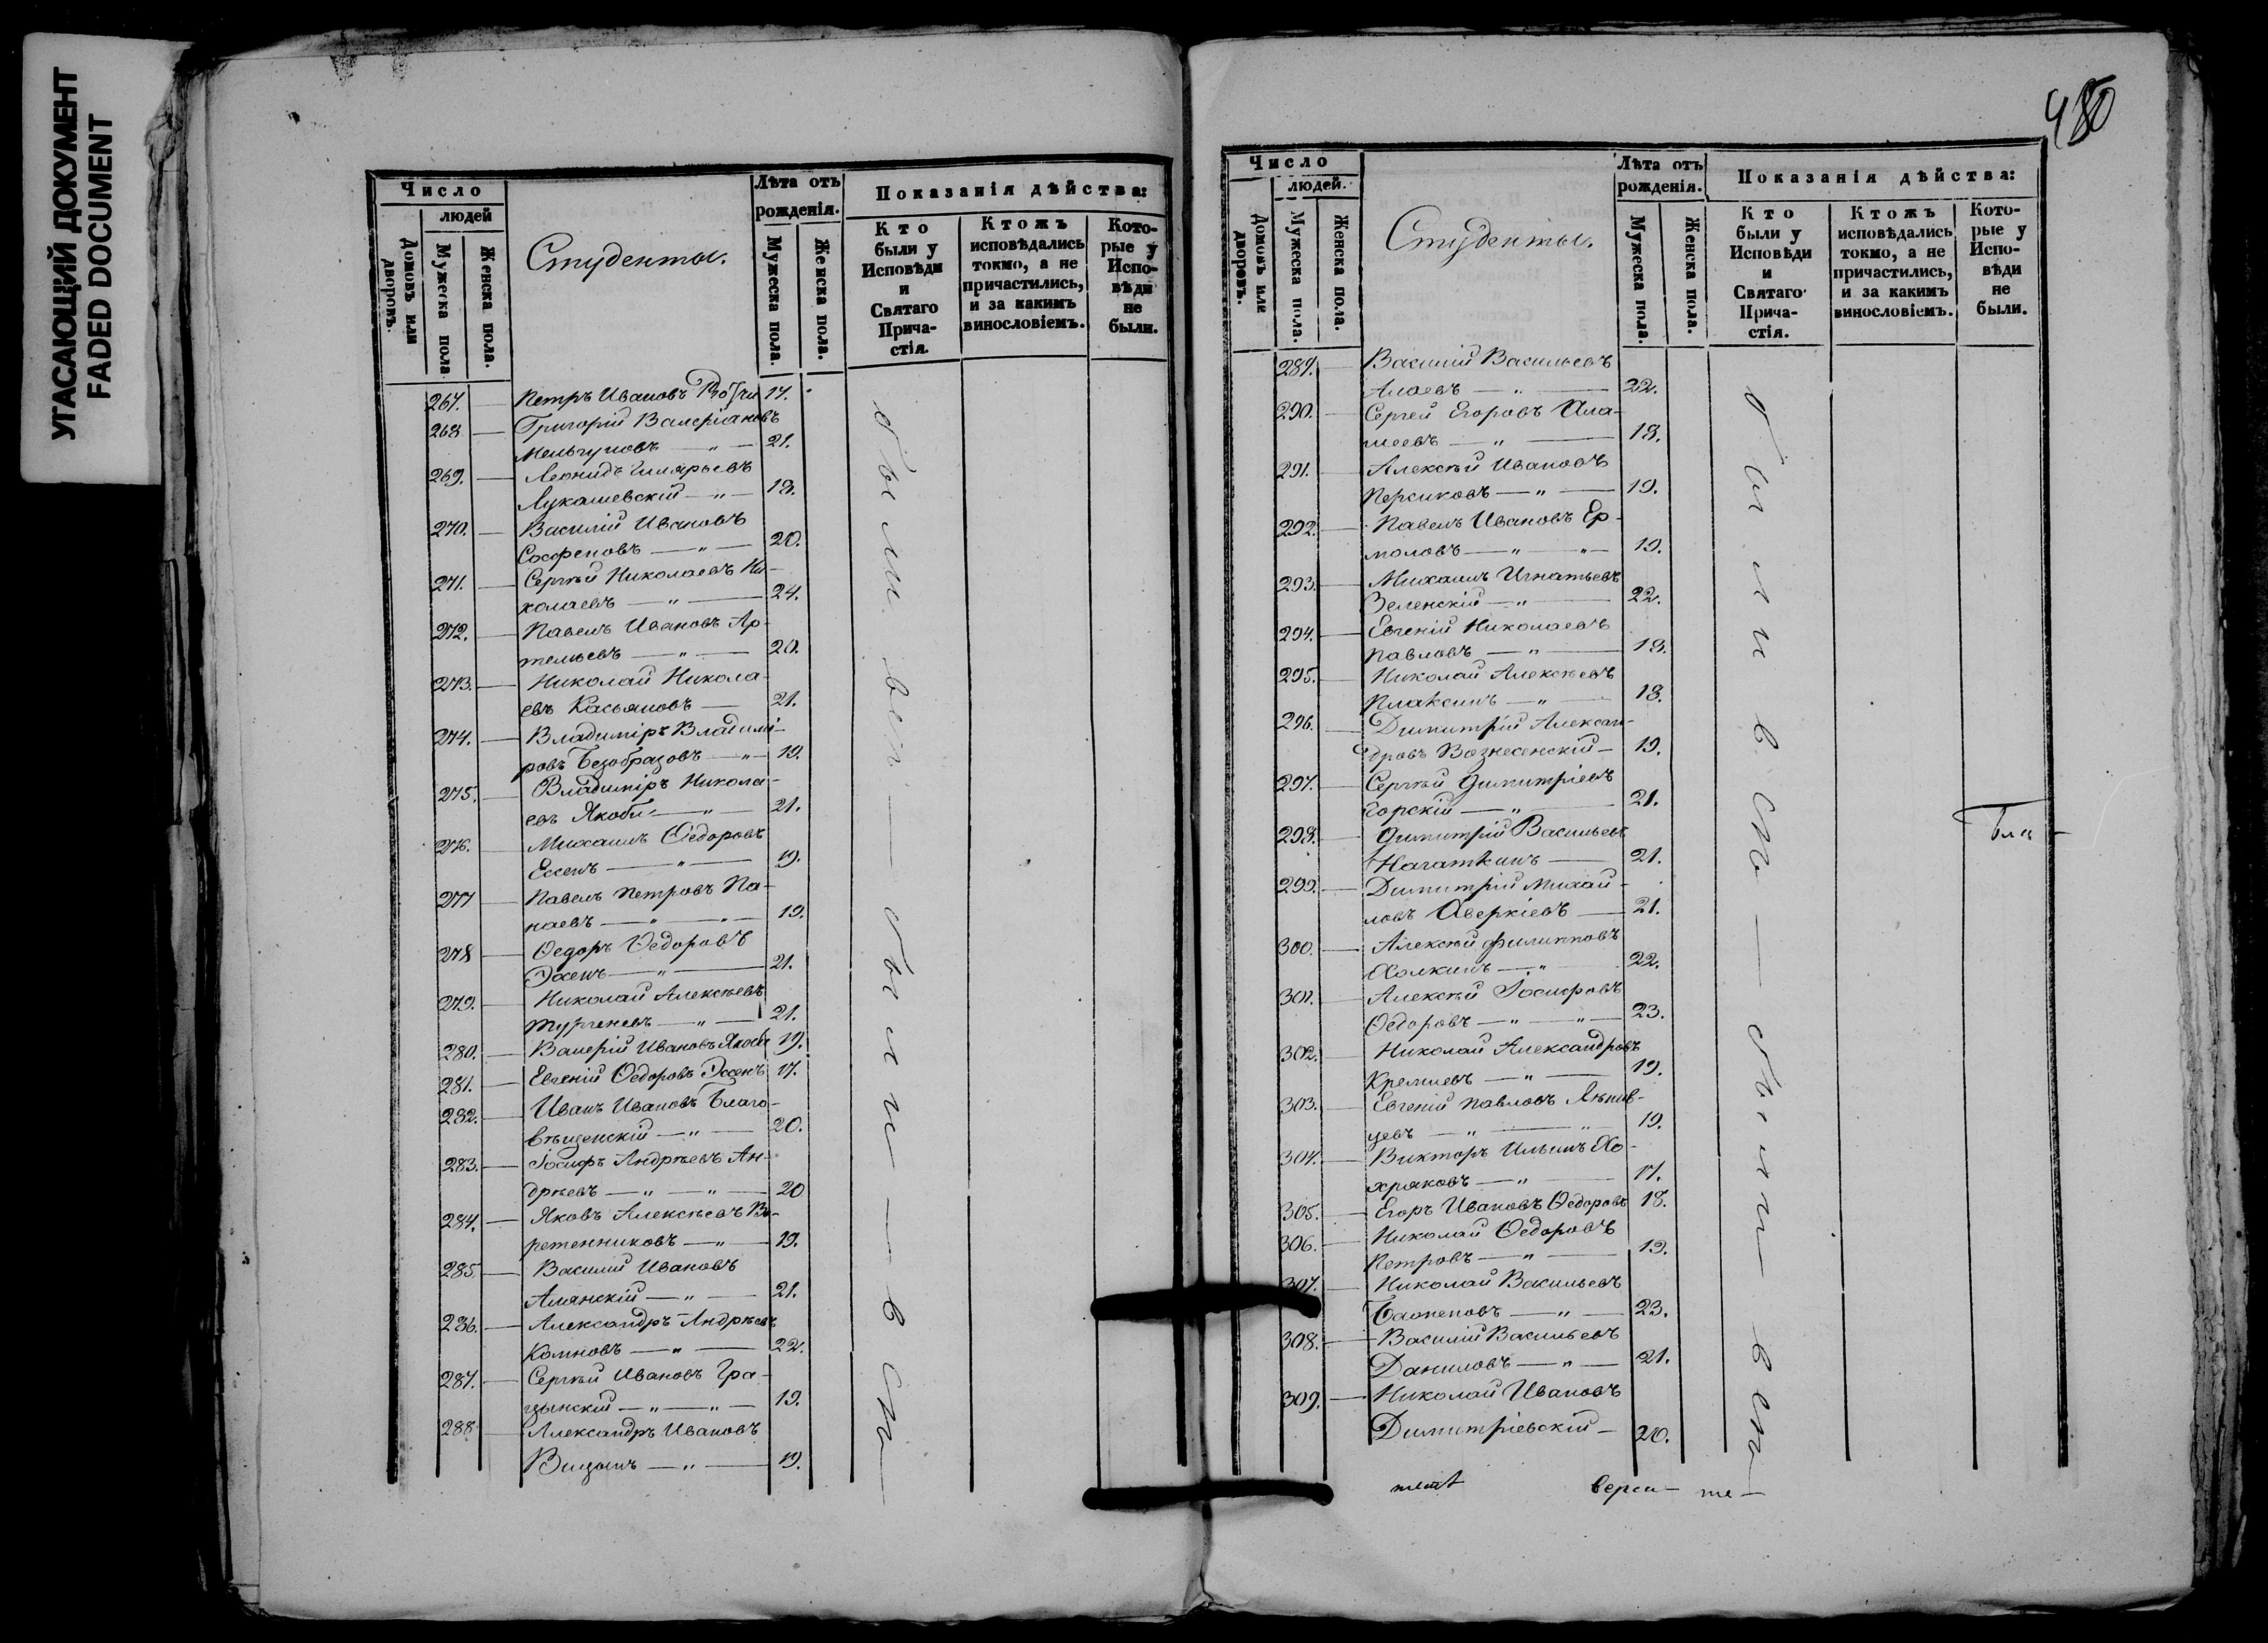 УГАСАЮЩИЙ ДОКУМЕНТ
FADED DOCUMENT
Число
людей
Домовъ или дворовъ.
Мужеска пола.
Женска пола.
Студенты.
Лѣта отъ
рожденія.
Мужеска пола.
Женска пола.
Показанія дѣйства:
Кто
были у
Исповѣди
и
Святаго
Прича-
стія.
Ктожъ
исповѣдались
токмо, а не
причастились,
и за какимъ
винословіемъ.
Кото-
рые у
Испо-
вѣди
не
были.
267. Петръ Ивановъ 17.
268 Григорій Валеріановъ
Мельгуновъ — " — 21.
269. Леонидъ
Лукашевскій — " — 18.
270. Василій Ивановъ
Сосфеновъ — " — 20.
271. Сергѣй Николаевъ Ни-
колаевъ — " — 24.
272. Павелъ Ивановъ Ар-
темьевъ — " — 20.
273. Николай Никола-
евъ Касьяновъ — 21.
274. Владиміръ Владимі-
ровъ Безобразовъ — " — 19.
275. Владиміръ Никола-
евъ Якоби — " — 21.
276. Михаилъ Ѳедоровъ
Ессенъ — " — 19.
277 Павелъ Петровъ Па-
наевъ — " — " — 19.
278 Ѳедоръ Ѳедоровъ
Эссенъ — " — 21.
279. Николай Алексѣевъ
Тургеневъ — " — 21.
280. Валерій Ивановъ Якоби 19.
281. Евгеній Ѳедоровъ Эссенъ 17.
282. Иванъ Ивановъ Благо-
вѣщенскій — " — 20.
283. Іосифъ Андрѣевъ Ан-
дрѣевъ — " — " — 20
284. Яковъ Алексѣевъ Ве-
ретенниковъ — " — 19.
285. Василій Ивановъ
Алянскій — " — 21.
286. Александръ Андрѣевъ
Комновъ — " — 22.
287. Сергѣй Ивановъ Гра-
цынскій — " — " — 19.
288 Александръ Ивановъ
Вицынъ — " — 19.
были всп — были — в сп —
480
Число
людей.
Домовъ или дворовъ.
Мужеска пола.
Женска пола.
Студенты.
Лѣта отъ
рожденія.
Мужеска пола.
Женска пола.
Показанія дѣйства:
Кто
были у
Исповѣди
и
Святаго
Прича-
стія.
Ктожъ
исповѣдались
токмо, а не
причастились,
и за какимъ
винословіемъ.
Кото-
рые у
Испо-
вѣди
не
были.
289. Василій Васильевъ
Алаевъ — " — 22.
290. Сергей Егоровъ Ала-
шеевъ — " — 18.
291. Алексѣй Ивановъ
Персиковъ — " — 19.
292. Павелъ Ивановъ Ер-
моловъ — " — " — 19.
293. Михаилъ Игнатьевъ
Зеленскій — " — 22.
294. Евгеній Николаевъ
Павловъ — " — 18.
295. Николай Алексѣевъ
Плаксинъ — " — 18.
296. Димитрій Алексан-
дровъ Вознесенскій — 19.
297. Сергѣй Димитріевъ
Горскій — " — 21.
298. Димитрій Васильевъ
Нагаткинъ — 21.
299. Димитрій Михай-
ловъ Аверкіевъ — 21.
300. Алексѣй Филипповъ
Холкинъ — " — 22.
301. Алексѣй Іосифовъ
Ѳедоровъ — " — " — 23.
302. Николай Александровъ
Кремлевъ — " — 19.
303. Евгеній Павловъ Лѣнив-
цевъ — " — " 19.
304. Викторъ Ильинъ Хо-
хряковъ — " — 17.
305. Егоръ Ивановъ Ѳедоровъ 18.
306. Николай Ѳедоровъ
Петровъ — " — 19.
307. Николай Васильевъ
— " — 23.
308. Василій Васильевъ
Даниловъ — " — 21.
309. Николай Ивановъ
Димитріевскій — 20.
были в сп — были в сп —
верси — те —